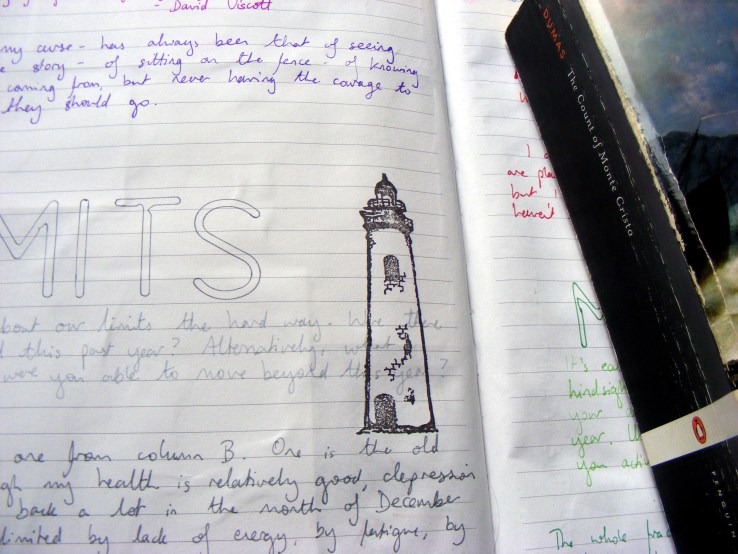 - David Viscott
my curse - has always been that of seeing
story - of sitting on the fence - of knowing
coming from, but never having the courage to
they should go.
MITS
about our limits the hard way.
this past year? Alternatively,
were you able to move beyond this year?
are from column B. One is the old
my health is relatively good, depression
back a lot in the month of December
limited by lack of energy, by fatigue, by
I
are
but
haven't
It's
hindsight
your
year.
you
The whole
DUMAS The Count of Monte Cristo
PENGUIN